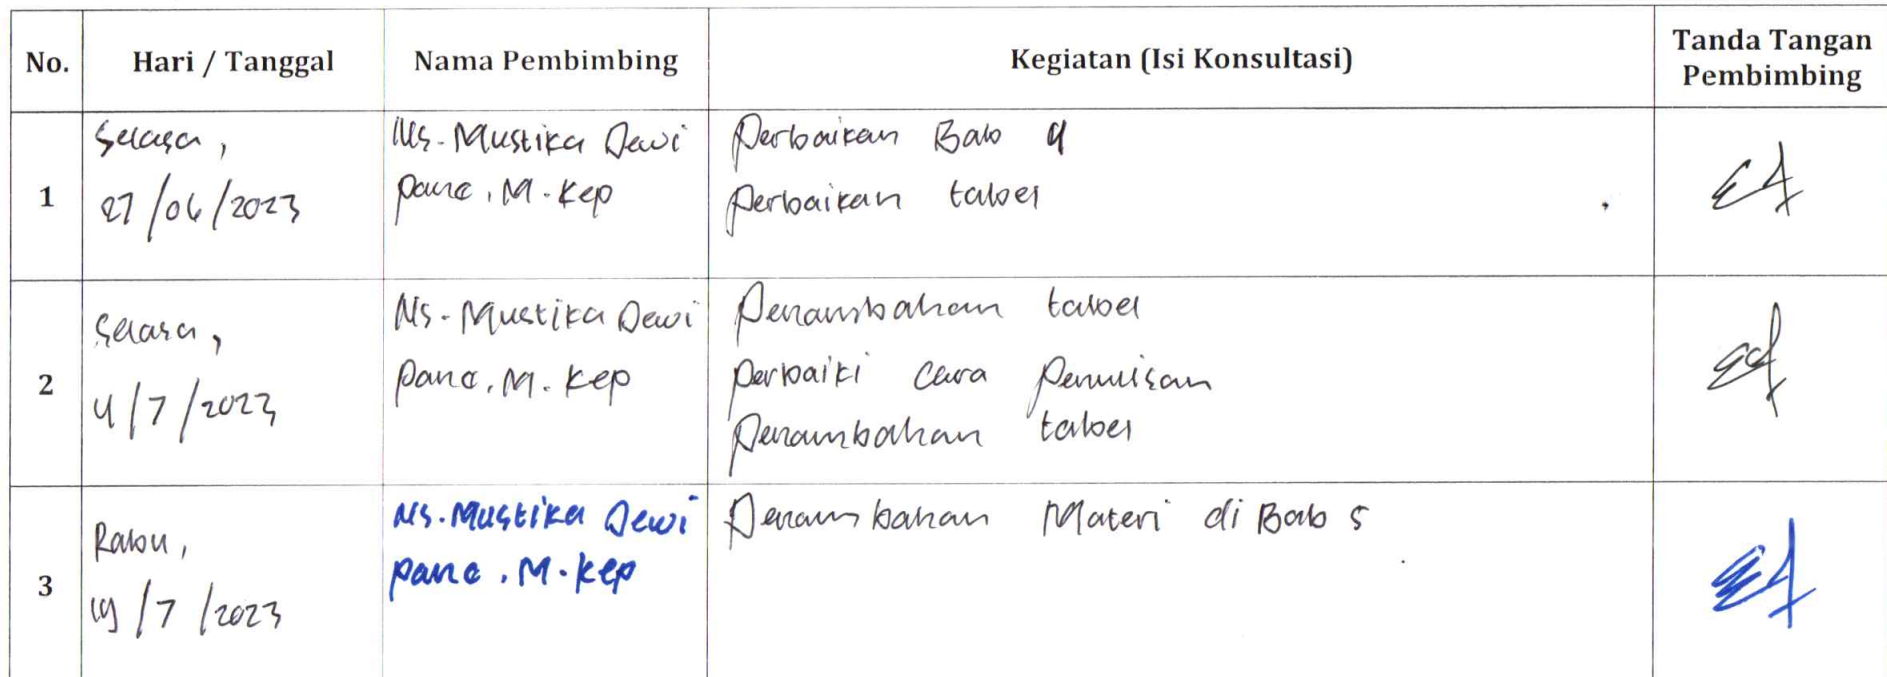 No.
Hari / Tanggal
Nama Pembimbing
Kegiatan (Isi Konsultasi)
Tanda Tangan
Pembimbing
1
Selasa,
27/06/2023
Ns. Mustika Dewi
Pane, M. Kep
Perbaikan Bab 4
Perbaikan tabel
2
Selasa,
4/7/2023
Ns. Mustika Dewi
Pane, M. Kep
Penambahan tabel
Perbaiki cara Penulisan
Penambahan tabel
3
Rabu,
19/7/2023
Ns. Mustika Dewi
Pane, M. Kep
Penambahan Materi di Bab 5